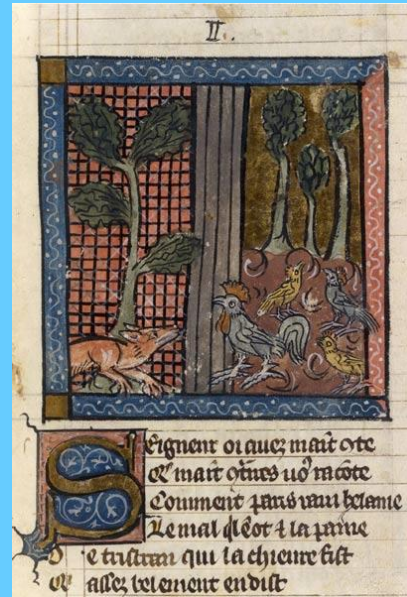 II.
Seignent oi auez maīt ꝯte
q̄ maīt ꝯteres uoꝰ racōte
Comment paris raui helaine
Le mal qͥl eōt ⁊ la paine
De tristran qui la chieure fist
q̄ assez belement en dist